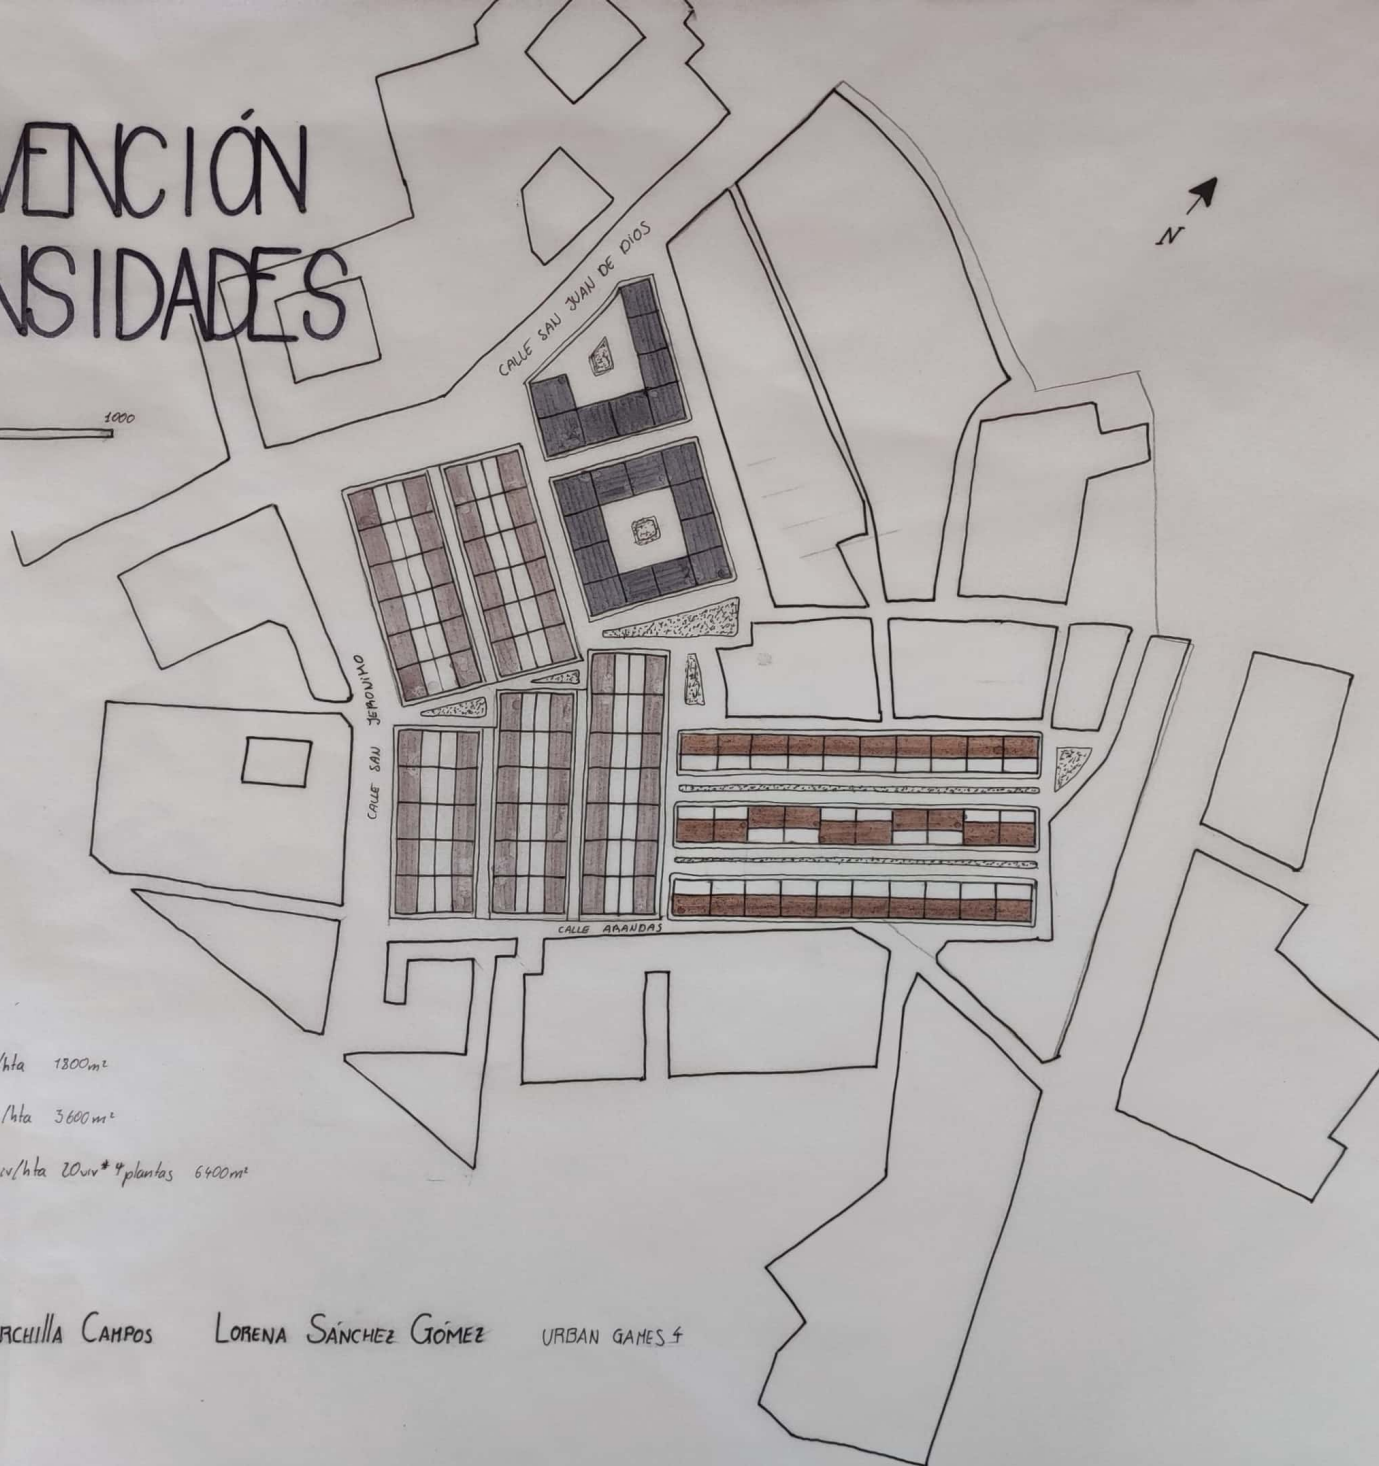 VENCIÓN
NSIDADES
1000
N
CALLE SAN JUAN DE DIOS
CALLE SAN JERONIMO
CALLE ARANDAS
/hta 1800m²
/hta 3600m²
iv/hta 20viv*4plantas 6400m²
RCHILLA CAMPOS LORENA SÁNCHEZ GÓMEZ URBAN GAMES 4